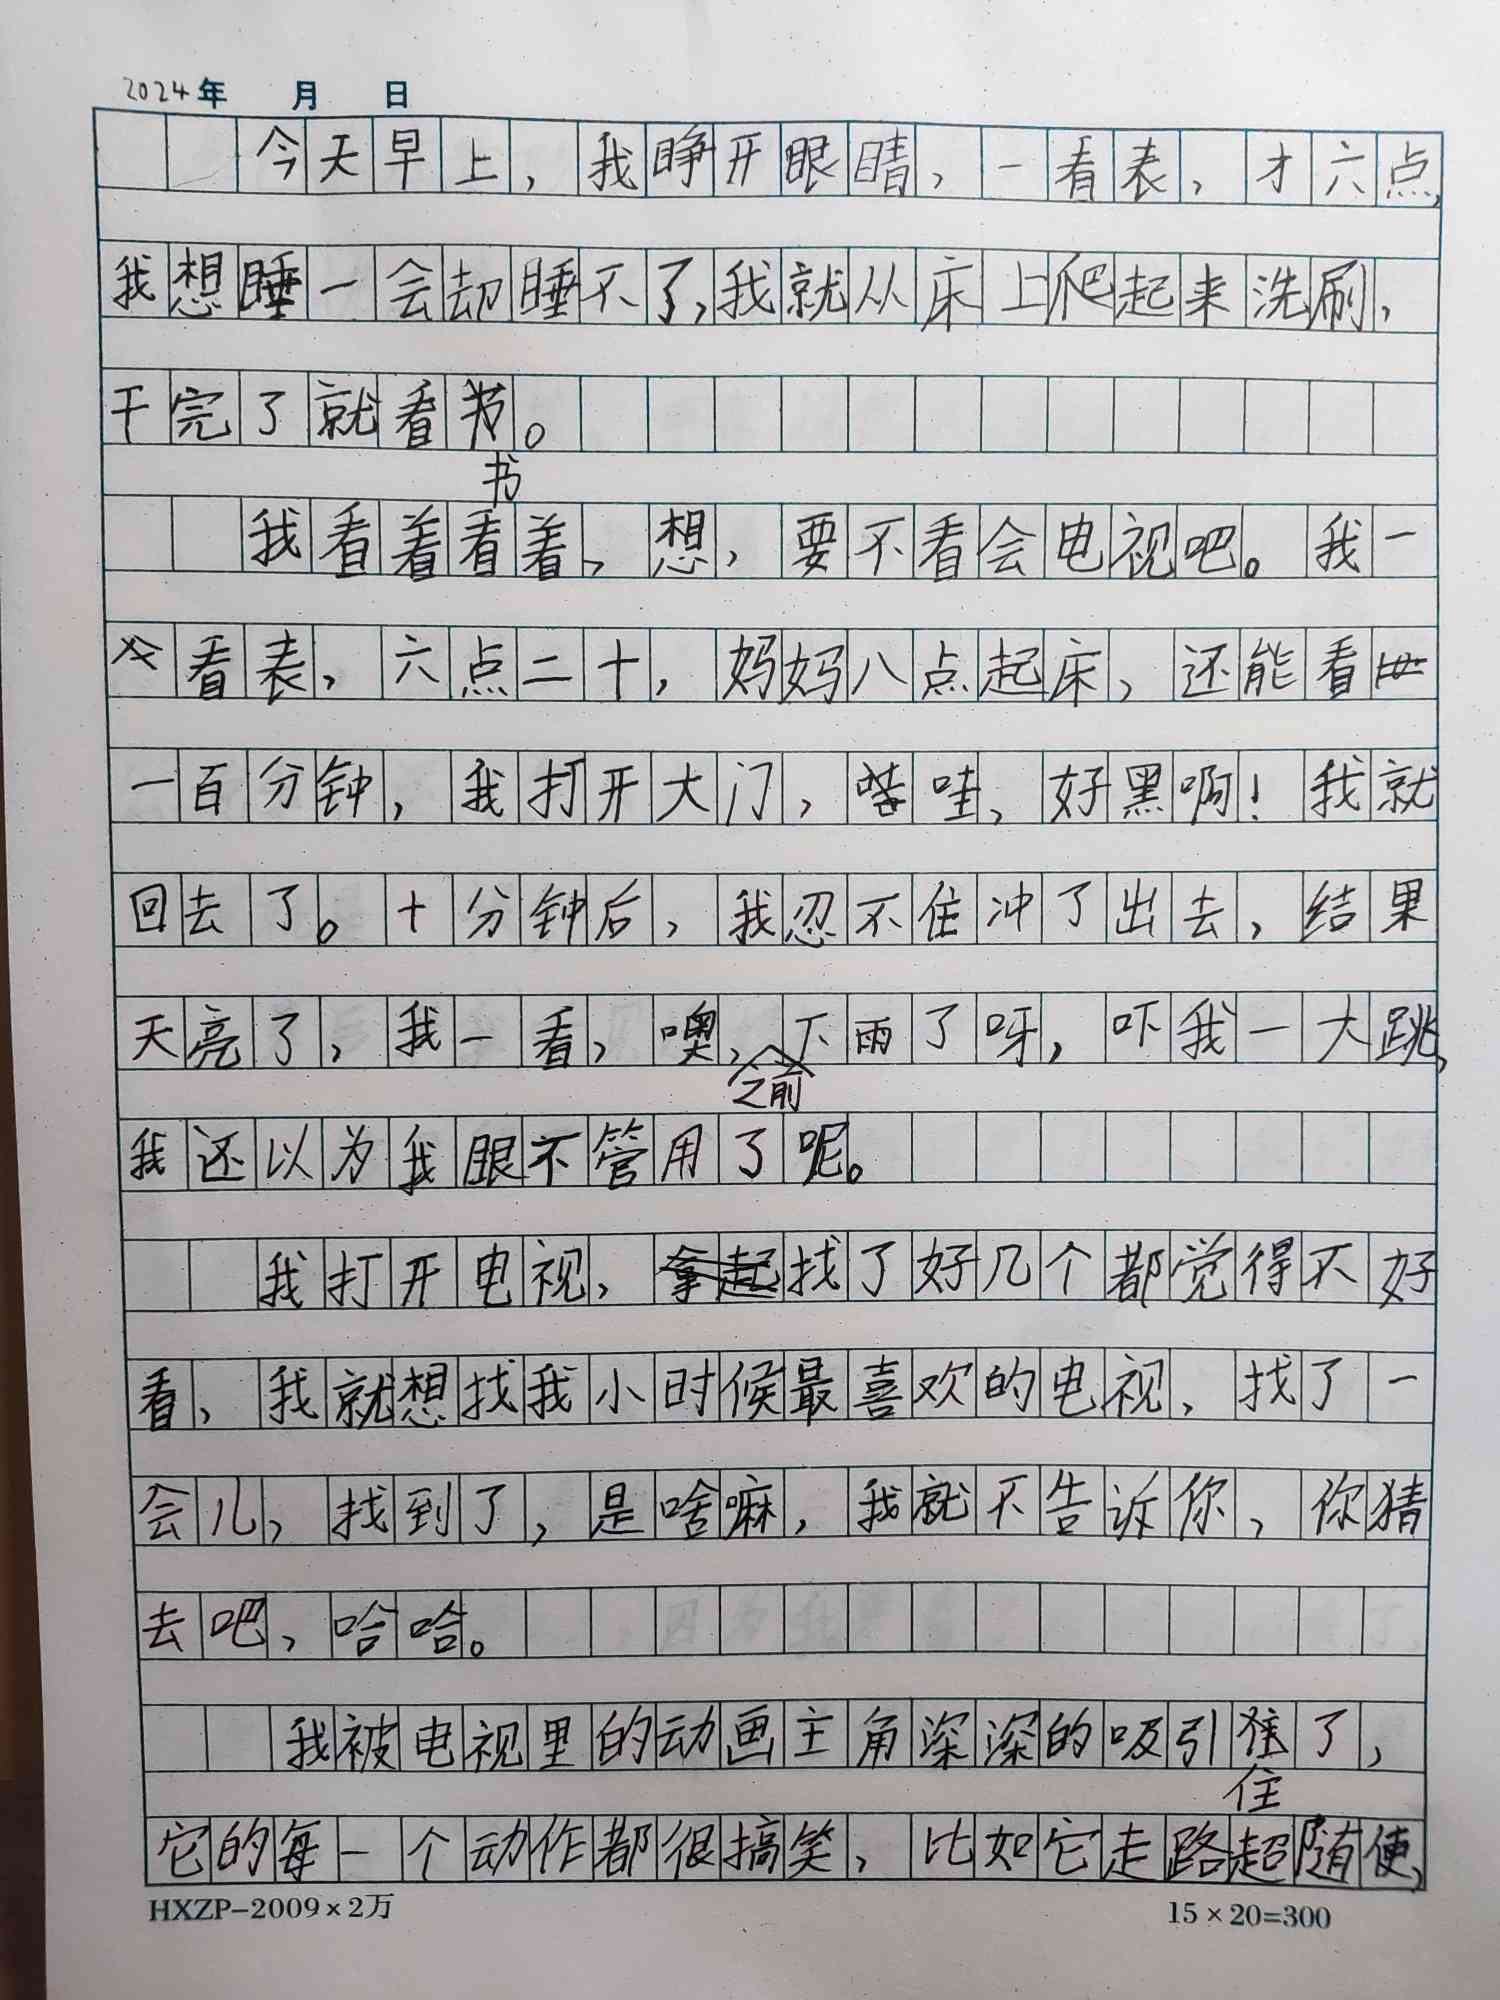 2024年 月 日
今天早上，我睁开眼睛，一看表，才六点，
我想睡一会却睡不了，我就从床上爬起来洗刷，
干完了就看书。
书
我看着看着，想，要不看会电视吧。我一
看表，六点二十，妈妈八点起床，还能看
一百分钟，我打开大门，哇，好黑啊！我就
回去了。十分钟后，我忍不住冲了出去，结果
天亮了，我一看，噢，下雨了呀，吓我一大跳，
之前
我还以为我眼不管用了呢。
我打开电视，拿起找了好几个都觉得不好
看，我就想找我小时候最喜欢的电视，找了一
会儿，找到了，是啥嘛，我就不告诉你，你猜
去吧，哈哈。
我被电视里的动画主角深深的吸引住了，
住
它的每一个动作都很搞笑，比如它走路超随便，
HXZP-2009×2万 15×20=300